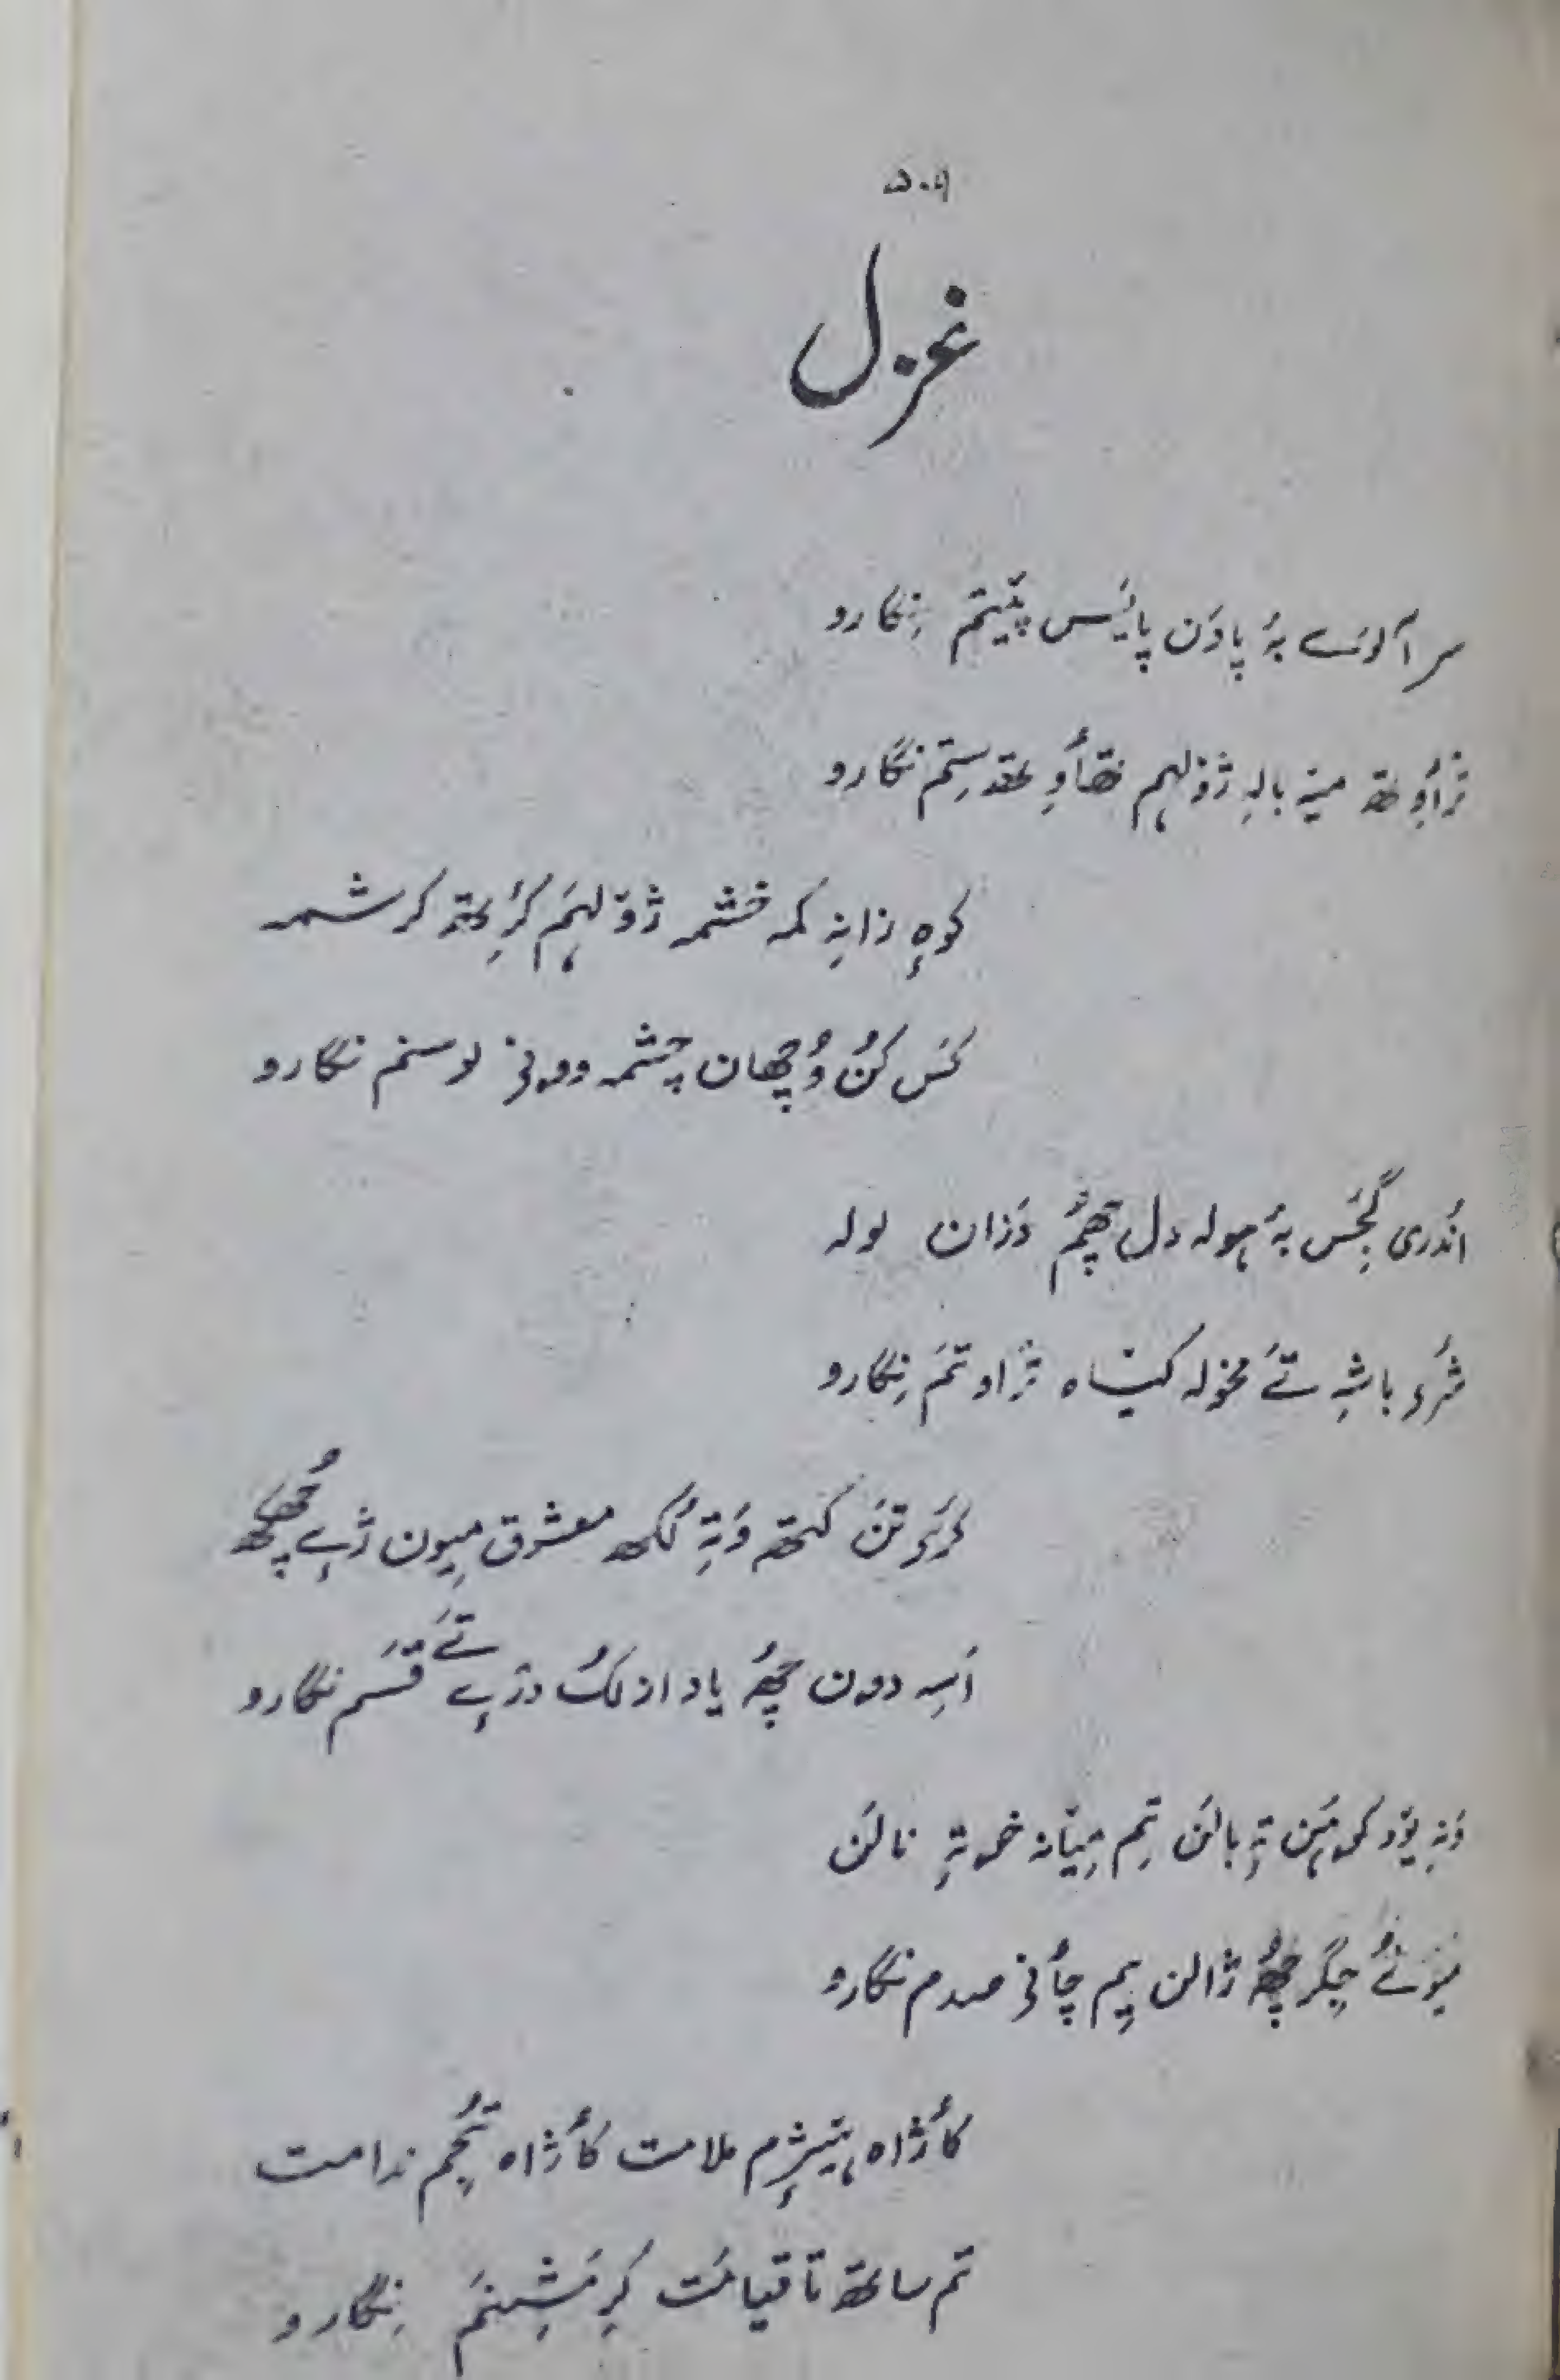 ۵۰۹
غزل
سر آلوَے بہٕ پادَن پایَس پیٚتَم نِگارو
ترٛٲوِتھ میٚہ بالہِ ژوٗلہَم تھٲوِتھ سِتَم نگارو
کوہٕ زانہِ کمہ خشمہ ژوٗلہَم کٔرِتھ کرشمہ
کَس کُن وُچھان چشمہ وونۍ لوسنم نگارو
اندری گجَس بہٕ ہولہ دِل چھُم وَزان لولہ
شرٛو باشہِ تَے مخولہ کیٚتاہ ترٛاوتَم نِگارو
تَن کتھ وَتہِ لُکھ معشوق میون ژےٚ چھُکھ
اَسہِ دون چھُ یاد ازلُک دزٛے تَے قسم نگارو
وَنہِ تہٕ بالَن تِم میٚانہ خوتہٕ نالَن
میٛونُے جِگر چھُ ژالن یِم چٲنۍ صدم نگارو
کٲژاہ ہیٚژٕم ملامت کٲژاہ تُجِم ندامت
تم ساعتھ تا قیامَت کَرِ مَشِنَم نِگارو